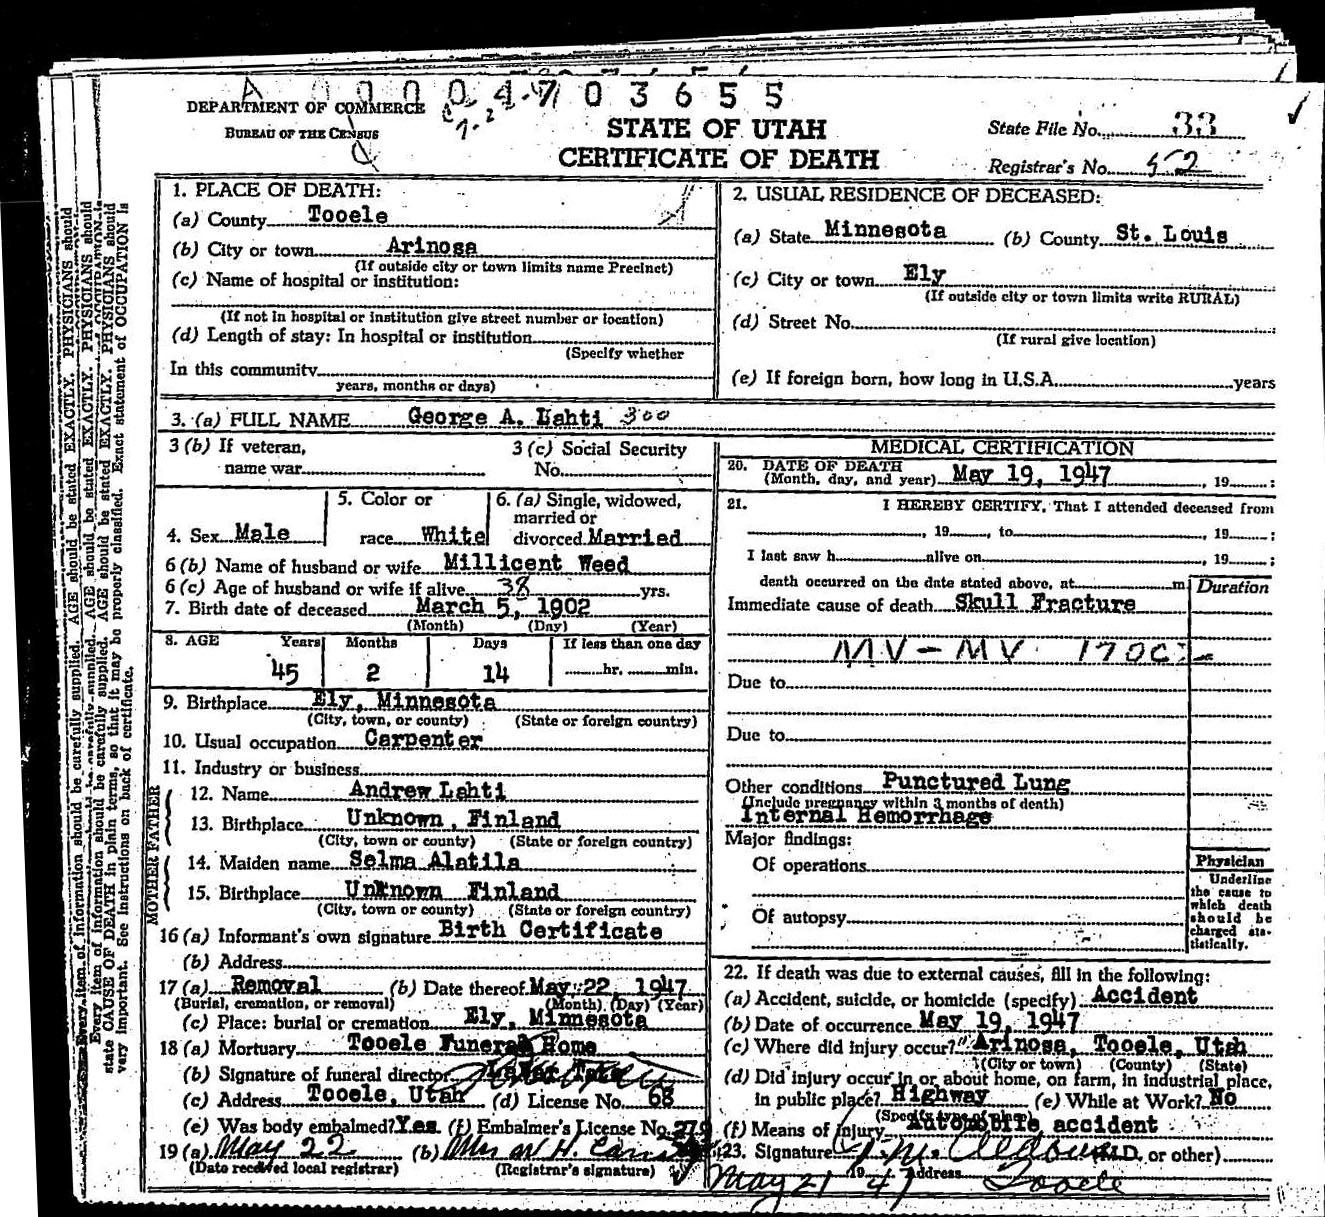 A 0 0 0 0 4 7 0 3 6 5 5
DEPARTMENT OF COMMERCE
BUREAU OF THE CENSUS
STATE OF UTAH
CERTIFICATE OF DEATH
State File No. 33
Registrar's No. 52
1. PLACE OF DEATH:
(a) County Tooele
(b) City or town Arinosa
(If outside city or town limits name Precinct)
(c) Name of hospital or institution:
(If not in hospital or institution give street number or location)
(d) Length of stay: In hospital or institution
(Specify whether
In this community
years, months or days)
2. USUAL RESIDENCE OF DECEASED:
(a) State Minnesota (b) County St. Louis
(c) City or town Ely
(If outside city or town limits write RURAL)
(d) Street No.
(If rural give location)
(e) If foreign born, how long in U.S.A. years
3. (a) FULL NAME George A. Lahti 300
3 (b) If veteran,
name war
3 (c) Social Security
No.
4. Sex Male
5. Color or
race White
6. (a) Single, widowed,
married or
divorced Married
6 (b) Name of husband or wife Millicent Weed
6 (c) Age of husband or wife if alive 38 yrs.
7. Birth date of deceased March 5, 1902
(Month) (Day) (Year)
8. AGE Years Months Days If less than one day
45 2 14 hr. min.
9. Birthplace Ely, Minnesota
(City, town, or county) (State or foreign country)
10. Usual occupation Carpenter
11. Industry or business
FATHER
12. Name Andrew Lahti
13. Birthplace Unknown, Finland
(City, town or county) (State or foreign country)
MOTHER
14. Maiden name Selma Alatila
15. Birthplace Unknown Finland
(City, town or county) (State or foreign country)
16 (a) Informant's own signature Birth Certificate
(b) Address
17 (a) Removal (b) Date thereof May 22, 1947
(Burial, cremation, or removal) (Month) (Day) (Year)
(c) Place: burial or cremation Ely, Minnesota
18 (a) Mortuary Tooele Funeral Home
(b) Signature of funeral director
(c) Address Tooele, Utah (d) License No. 68
(e) Was body embalmed? Yes (f) Embalmer's License No. 279
19 (a) May 22 (b) Mrs W. H.
(Date received local registrar) (Registrar's signature)
MEDICAL CERTIFICATION
20. DATE OF DEATH
(Month, day, and year) May 19, 1947, 19 ;
21. I HEREBY CERTIFY, That I attended deceased from
, 19 , to , 19 ;
I last saw h alive on , 19 ;
death occurred on the date stated above, at m
Duration
Immediate cause of death Skull Fracture
MV - MV 170C
Due to
Due to
Other conditions Punctured Lung
(Include pregnancy within 3 months of death)
Internal Hemorrhage
Major findings:
Of operations
Of autopsy
Physician
Underline
the cause to
which death
should be
charged sta-
tistically.
22. If death was due to external causes, fill in the following:
(a) Accident, suicide, or homicide (specify) Accident
(b) Date of occurrence May 19, 1947
(c) Where did injury occur? Arinosa, Tooele, Utah
(City or town) (County) (State)
(d) Did injury occur in or about home, on farm, in industrial place,
in public place? Highway (e) While at Work? No
(Specify type of place)
(f) Means of injury Automobile accident
23. Signature J. M. (M.D. or other)
May 21 19 47 Address Tooele
Every item of information should be carefully supplied. AGE should be stated EXACTLY. PHYSICIANS should
state CAUSE OF DEATH in plain terms, so that it may be properly classified. Exact statement of OCCUPATION is
very important. See instructions on back of certificate.